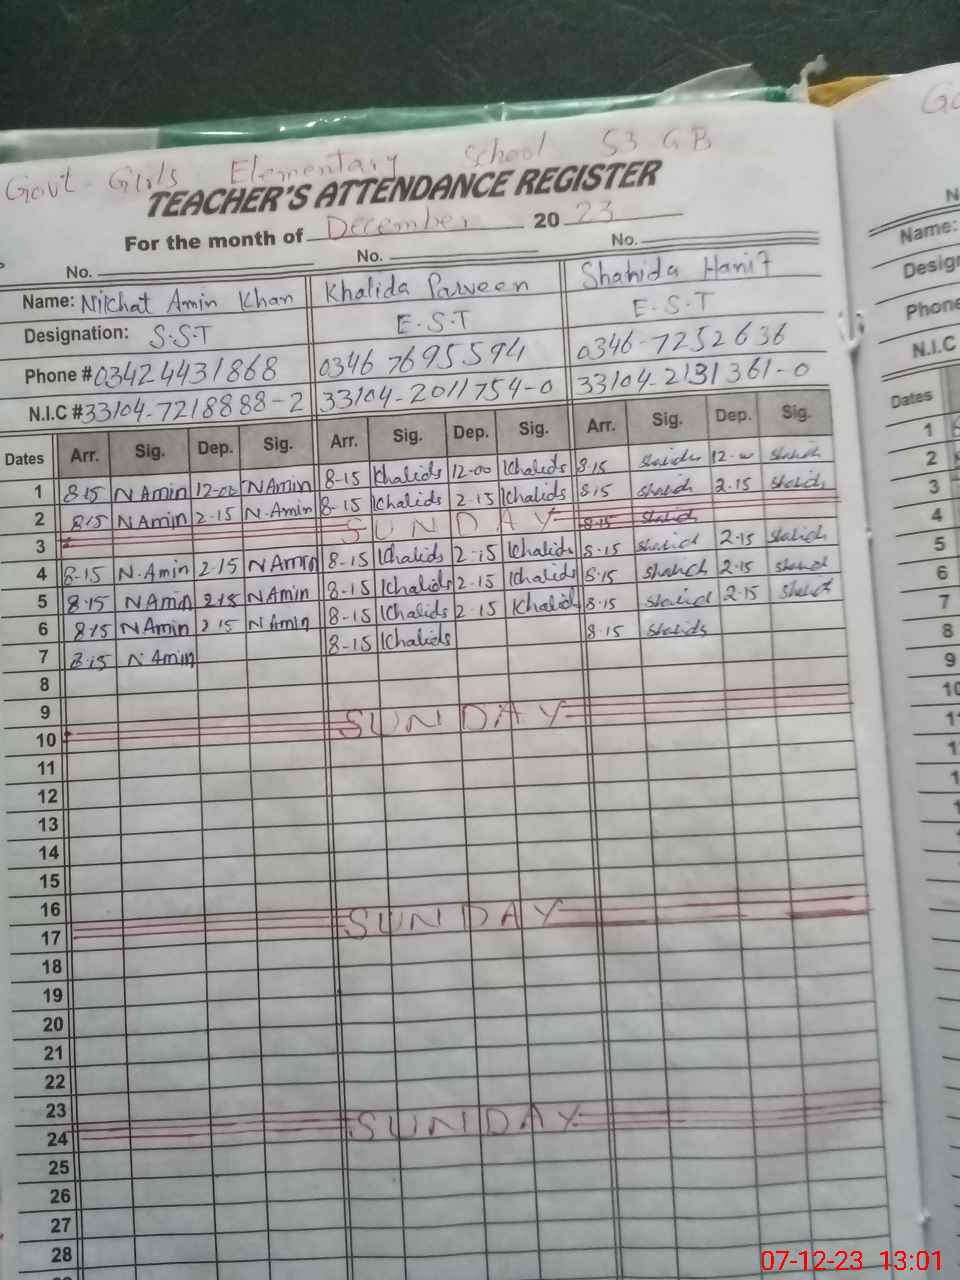 Govt Girls Elementary School 53 GB
TEACHER'S ATTENDANCE REGISTER
For the month of December 2023
No. No. No.
Name: Nikhat Amin Khan Khalida Parveen Shahida Hanif
Designation: S.S.T E.S.T E.S.T
Phone # 03424431868 0346 7695594 0346-7252636
N.I.C # 33104-7218888-2 33104-2011754-0 33104-2131361-0
Dates Arr. Sig. Dep. Sig. Arr. Sig. Dep. Sig. Arr. Sig. Dep. Sig.
1 8-15 N Amin 12-00 N Amin 8-15 Khalida 12-00 Khalida 8-15 Shahida 12-00 Shahid
2 8-15 N Amin 2-15 N.Amin 8-15 Khalida 2-15 Khalida 8-15 Shahid 2.15 Shahida
3 SUNDAY 8-15 Shahid
4 8-15 N.Amin 2-15 N Amin 8-15 Khalida 2-15 Khalida 8-15 Shahid 2-15 Shahid
5 8-15 N Amin 2-15 N Amin 8-15 Khalida 2-15 Khalida 8-15 Shahid 2-15 Shahid
6 8-15 N Amin 2-15 N Amin 8-15 Khalida 2-15 Khalida 8-15 Shahid 2-15 Shahid
7 8-15 N Amin 8-15 Khalida 8-15 Shahida
8
9
10 SUNDAY
11
12
13
14
15
16
17 SUNDAY
18
19
20
21
22
23
24 SUNDAY
25
26
27
28
Go
N
Name:
Design
Phone
N.I.C
Dates
1
2
3
4
5
6
7
8
9
10
1
07-12-23 13:01